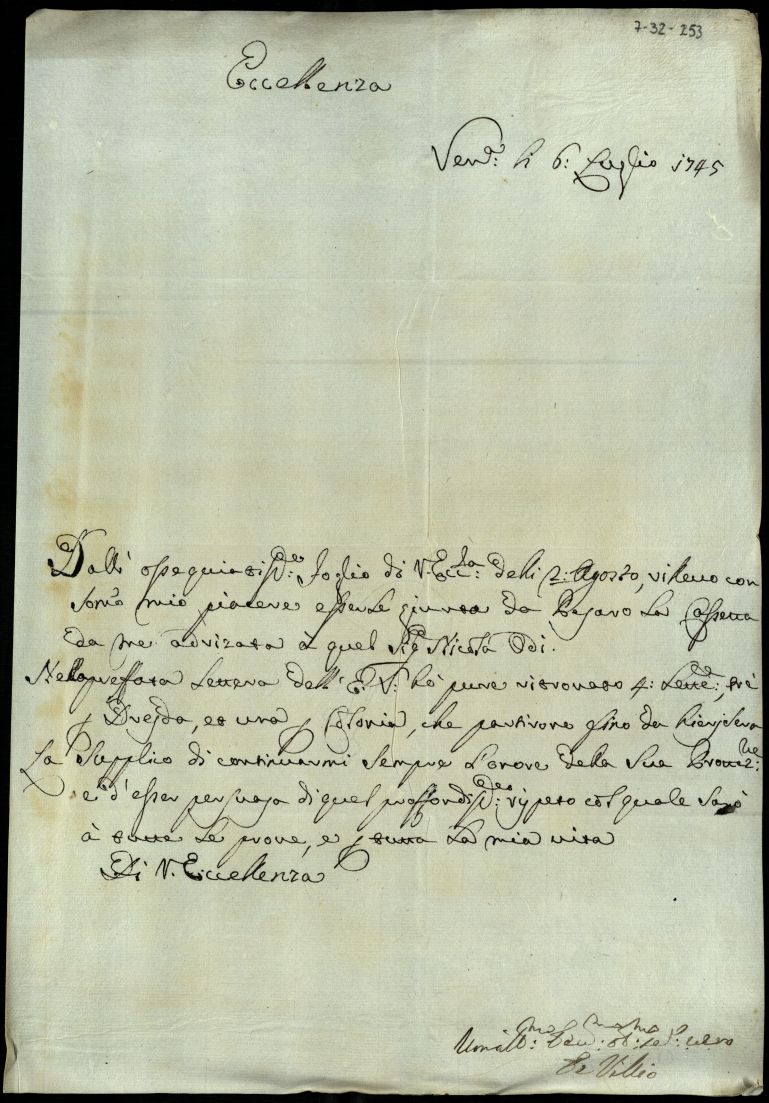 7-32-253
Eccellenza
Ven.ª: li 6: Luglio 1745
Dall' ossequiatiss.º: foglio di V. Ecc.za: delli 2: Agosto, rilevo con
som̃o mio piacere esserle giunta da Pesaro la Cassetta
da me avvizata à quel Sig.e Nicola Odi.
Nella prefata lettera dell' E. V: hò pure ritrovato 4: Lette.re; trè
p Dresda, et una p Colonia, che partirono sino da hiersera
La Supplico di continuarmi sempre l'onore della Sua Protez.ne:
e d' esser persuasa di quel proffondiss.º: rispetto col quale sarò
à tutte le prove, e p tutta la mia vita
Di V. Eccellenza
Umil.mo: Dev.mo: ob: se.r: vero
De Villio